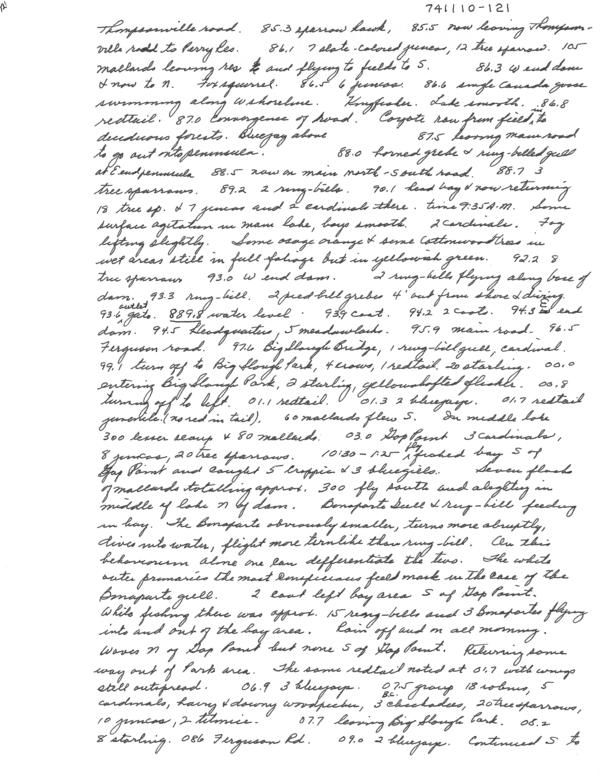 741110-121
Thompsonville road. 85.3 sparrow hawk, 85.5 now leaving Thompson-
ville road to Perry Res. 86.1 7 slate-colored juncos, 12 tree sparrow. 105
mallards leaving res and flying to fields to S. 86.3 W end dam
& now to N. Fox squirrel. 86.5 6 juncos. 86.6 single Canada goose
swimming along W shoreline. Kingfisher. Lake smooth. 86.8
redtail. 87.0 convergence of road. Coyote ran from field into
deciduous forests. Bluejay above 87.5 leaving main road
to go out onto peninsula. 88.0 horned grebe & ring-billed gull
at E end peninsula 88.5 now on main north-south road. 88.7 3
tree sparrows. 89.2 2 ring-bills. 90.1 head bay & now returning
18 tree sp. & 7 juncos and 2 cardinals there. time 9:35 A.M. Some
surface agitation in main lake, bays smooth. 2 cardinals. Fog
lifting slightly. Some osage orange & some Cottonwood trees in
wet areas still in full foliage but in yellowish green. 92.2 8
tree sparrows 93.0 W end dam. 2 ring-bills flying along base of
dam. 93.3 ring-bill. 2 pied bill grebes 4' out from shore & diving.
93.6 outlet gate. 889.8 water level. 93.9 coot. 94.2 2 coots. 94.3 E end
dam. 94.5 Headquarters, 5 meadowlarks. 95.9 main road. 96.5
Ferguson road. 97.6 Big Slough Bridge, 1 ring-bill gull, cardinal.
99.1 turn off to Big Slough Park, 4 crows, 1 redtail, 20 starling. 00.0
entering Big Slough Park, 2 starling, yellowshafted flicker. 00.8
turning off to left. 01.1 redtail. 01.3 2 bluejays. 01.7 redtail
juvenile (no red in tail). 60 mallards flew S. In middle lake
300 lesser scaup & 80 mallards. 03.0 Gap Point 3 cardinals,
8 juncos, 20 tree sparrows. 10:30-1:25 fly fished bay S of
Gap Point and caught 5 crappie & 3 bluegills. Seven flocks
of mallards totalling approx. 300 fly south and alighting in
middle of lake N of dam. Bonaparte Gull & ring-bill feeding
in bay. The Bonaparte obviously smaller, turns more abruptly,
dives into water, flight more ternlike than ring-bill. On this
behaviourism alone one can differentiate the two. The white
outer primaries the most conspicuous field mark in the case of the
Bonaparte gull. 2 coot left bay area S of Gap Point.
While fishing there was approx. 15 ring-bills and 3 Bonapartes flying
into and out of the bay area. Rain off and on all morning.
Waves N of Gap Point but none S of Gap Point. Returning same
way out of Park area. The same redtail noted at 01.7 with wings
still outspread. 06.9 3 bluejays. 07.5 group 18 robins, 5
cardinals, hairy & downy woodpecker, 3 B.C. chickadees, 20 tree sparrows,
10 juncos, 2 titmice. 07.7 leaving Big Slough Park. 08.2
8 starling. 08.6 Ferguson Rd. 09.0 2 bluejays. Continued S to